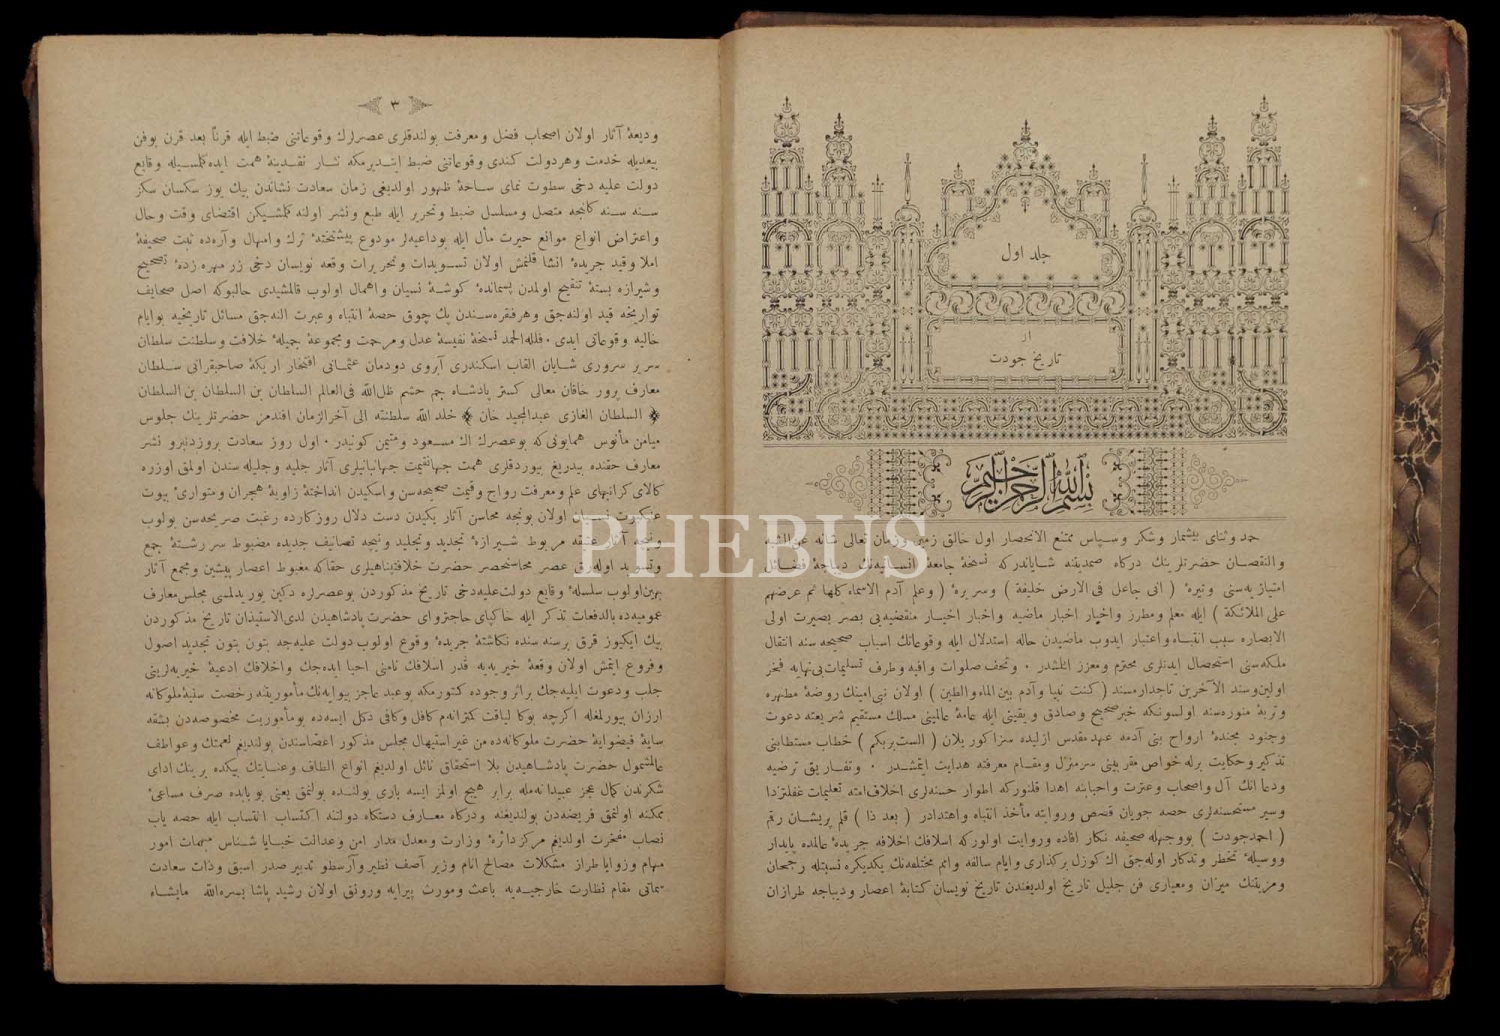 جلد اول
از
تاریخ جودت
بسم الله الرحمن الرحیم
حمد وثنای بیشمار وشکر وسپاس ممتنع الانحصار اول خالق زمین وزمان تعالی شانه عن
والنقصان حضرتلرینك درکاه صمدیتنه شایاندرکه نسخهٔ جامعهٔ انسانیه‌نك دیباجهٔ فضائل
امتیازیه‌سنی وتیرهٔ ( انی جاعل فی‌الارض خلیفة ) وسریرهٔ ( وعلم آدم الاسماء کلها ثم عرضهم
علی الملائکة ) ایله معلم ومطرز واخیار اخبار ماضیه واخبار اخیار منقضیه‌یی بصر بصیرت اولی
الابصاره سبب انتباه واعتبار ایدوب ماضیدن حاله استدلال ایله وقوعاتك اسباب صحیحه سنه انتقال
ملکه‌سنی استحصال ایدنلری محترم ومعزز ایتمشدر ۰ وتحف صلوات وافیه وطرف تسلیمات بی‌نهایه فخر
اولین وسند الآخرین تاجدار مسند ( کنت نبیا وآدم بین الماء والطین ) اولان نبی امینك روضهٔ مطهره
وتربهٔ منوره‌سنه اولسونکه خبر صحیح وصادق ویقینی ایله عامهٔ عالمینی مسلك مستقیم شریعته دعوت
وجنود مجندهٔ ارواح بنی آدمه عهد مقدس ازلیده سزاکور بیلان ( الست بربکم ) خطاب مستطابنی
تذکیر وحکایت برله خواص مقربینی سرمنزل ومقام معرفته هدایت ایتمشدر ۰ وتفاریق ترضیه
ودعا انك آل واصحاب وعترت واحبابنه اهدا قلنورکه اطوار حسنه‌لری اخلاف امته تعلیمات غفلتزدا
وسیر مستحسنه‌لری حصه جویان قصص وروایته مأخذ انتباه واهتدادر ( بعد ذا ) قلم پریشان رقم
( احمد جودت ) بووجهله صحیفه نکار افاده وروایت اولورکه اسلافك اخلافه جریدهٔ عالمده پایدار
ووسیلهٔ تخطر وتذکار اوله‌جق اك کوزل یرکذاری وایام سالفه وامم مختلفه‌نك یکدیکره نسبتله رجحان
ومزیتنك میزان ومعیاری فن جلیل تاریخ اولدیغندن تاریخ نویسان کتابهٔ اعصار ودیباجه طرازان
۳
ودیعهٔ آثار اولان اصحاب فضل ومعرفت بولندقلری عصرلرك وقوعاتنی ضبط ایله قرناً بعد قرن بوفن
بیعدیله خدمت وهردولت کندی وقوعاتنی ضبط ایتدیرمکه نثار نقدینهٔ همت ایده‌کلمسیله وقایع
دولت علیه دخی سطوت نمای ساحهٔ ظهور اولدیغی زمان سعادت نشاندن بیك یوز سکسان سکز
سنه سنه کلنجه متصل ومسلسل ضبط وتحریر ایله طبع ونشر اولنه کلمشیکن اقتضای وقت وحال
واعتراض انواع موانع حیرت مأل ایله بوداعیه‌لر مودوع پیشتختهٔ ترك وامهال وآره‌ده ثبت صحیفهٔ
املا وقید جریدهٔ انشا قلنمش اولان تسویدات وتحریرات وقعه نویسان دخی زر مهره زدهٔ تصحیح
وشیرازه بستهٔ تنقیح اولمدن پسماندهٔ کوشهٔ نسیان واهمال اولوب قالمشیدی حالبوکه اصل صحایف
تواریخه قید اوله‌جق وهرفقره‌سندن پك چوق حصهٔ انتباه وعبرت النه‌جق مسائل تاریخیه بوایام
خالیه وقوعاتی ایدی . فلله الحمد نسخهٔ نفیسهٔ عدل ومرحمت ومجموعهٔ جمیلهٔ خلافت وسلطنت سلطان
سریر سروری شایان القاب اسکندری آبروی دودمان عثمانی افتخار اریکهٔ صاحبقرانی سلطان
معارف پرور خاقان معالی کستر پادشاه جم حشم ظل‌الله فی‌العالم السلطان بن السلطان بن السلطان
السلطان الغازی عبدالمجید خان خلد الله سلطنته الی آخرالزمان افندمز حضرتلرینك جلوس
میامن مأنوس همایونی که بوعصرك اك مسعود ومتیمن کونیدر ۰ اول روز سعادت بروزدنبرو نشر
معارف حقنده بیدریغ بیوردقلری همت جهانقیمت جهانبانیلری آثار جلیه وجلیله سندن اولمق اوزره
کالای کرانبهای علم ومعرفت رواج وقیمت صحیحه‌سن واسکیدن انداختهٔ زاویهٔ هجران ومتواریٔ بیوت
عنکبوت نسیان اولان بونجه محاسن آثار یکیدن دست دلال روزکارده رغبت صریحه‌سن بولوب
ونیجه آثار عتیقه مربوط شیرازهٔ تجدید وتجلید ونیجه تصانیف جدیده مضبوط سر رشتهٔ جمع
وتسوید اوله‌رق عصر محاسنحصر حضرت خلافتپناهیلری حقاکه مغبوط اعصار پیشین ومجمع آثار
بهین اولوب سلسلهٔ وقایع دولت‌علیه‌دخی تاریخ مذکوردن بوعصرلره دکین یوریدلمسی مجلس معارف
عمومیه‌ده بالدفعات تذکر ایله خاکپای حاجتروای حضرت پادشاهیدن لدی‌الاستیذان تاریخ مذکوردن
بیك ایکیوز قرق برسنه سنده نکاشتهٔ جریدهٔ وقوع اولوب دولت علیه‌جه بتون بتون تجدید اصول
وفروع ایتمش اولان وقعهٔ خیریه‌یه قدر اسلافك نامنی احیا ایده‌جك واخلافك ادعیهٔ خیریه‌لرینی
جلب ودعوت ایلیه‌جك براثر وجوده کتورمکه بوعبد عاجز بیوایه‌نك مأموریتنه رخصت سنیهٔ ملوکانه
ارزان بیورلمغله اکرچه بوکا لیاقت کمترانه‌م کافل وکافی دکل ایسه‌ده بومأموریت مخصوصه‌دن بشقه
سایهٔ فیضوایهٔ حضرت ملوکانه‌ده من غیر استیهال مجلس مذکور اعضاسندن بولندیغم نعمتك وعواطف
عالمشمول حضرت پادشاهیدن بلا استحقاق نائل اولدیغم انواع الطاف وعنایتك بیکده برینك ادای
شکرندن کمال عجز عبیدانه‌مله برابر هیچ اولمز ایسه باری بولنده بولنمق یعنی بو یابده صرف مساعیٔ
ممکنه اولنمق فریضه‌دن بولندیغنه ودرکاه معارف دستکاه دولتنه اکتساب انتساب ایله حصه یاب
نصاب مفخرت اولدیغم مرکز دائرهٔ وزارت ومعدل مدار امن وعدالت خبایا شناس مبهمات امور
مهام وزوایا طراز مشکلات مصالح انام وزیر آصف نظیر وآرسطو تدبیر صدر اسبق وذات سعادت
سماتی مقام نظارت خارجیه‌یه باعث ومورث پیرایه ورونق اولان رشید پاشا یسره‌الله مایشاء
PHEBUS